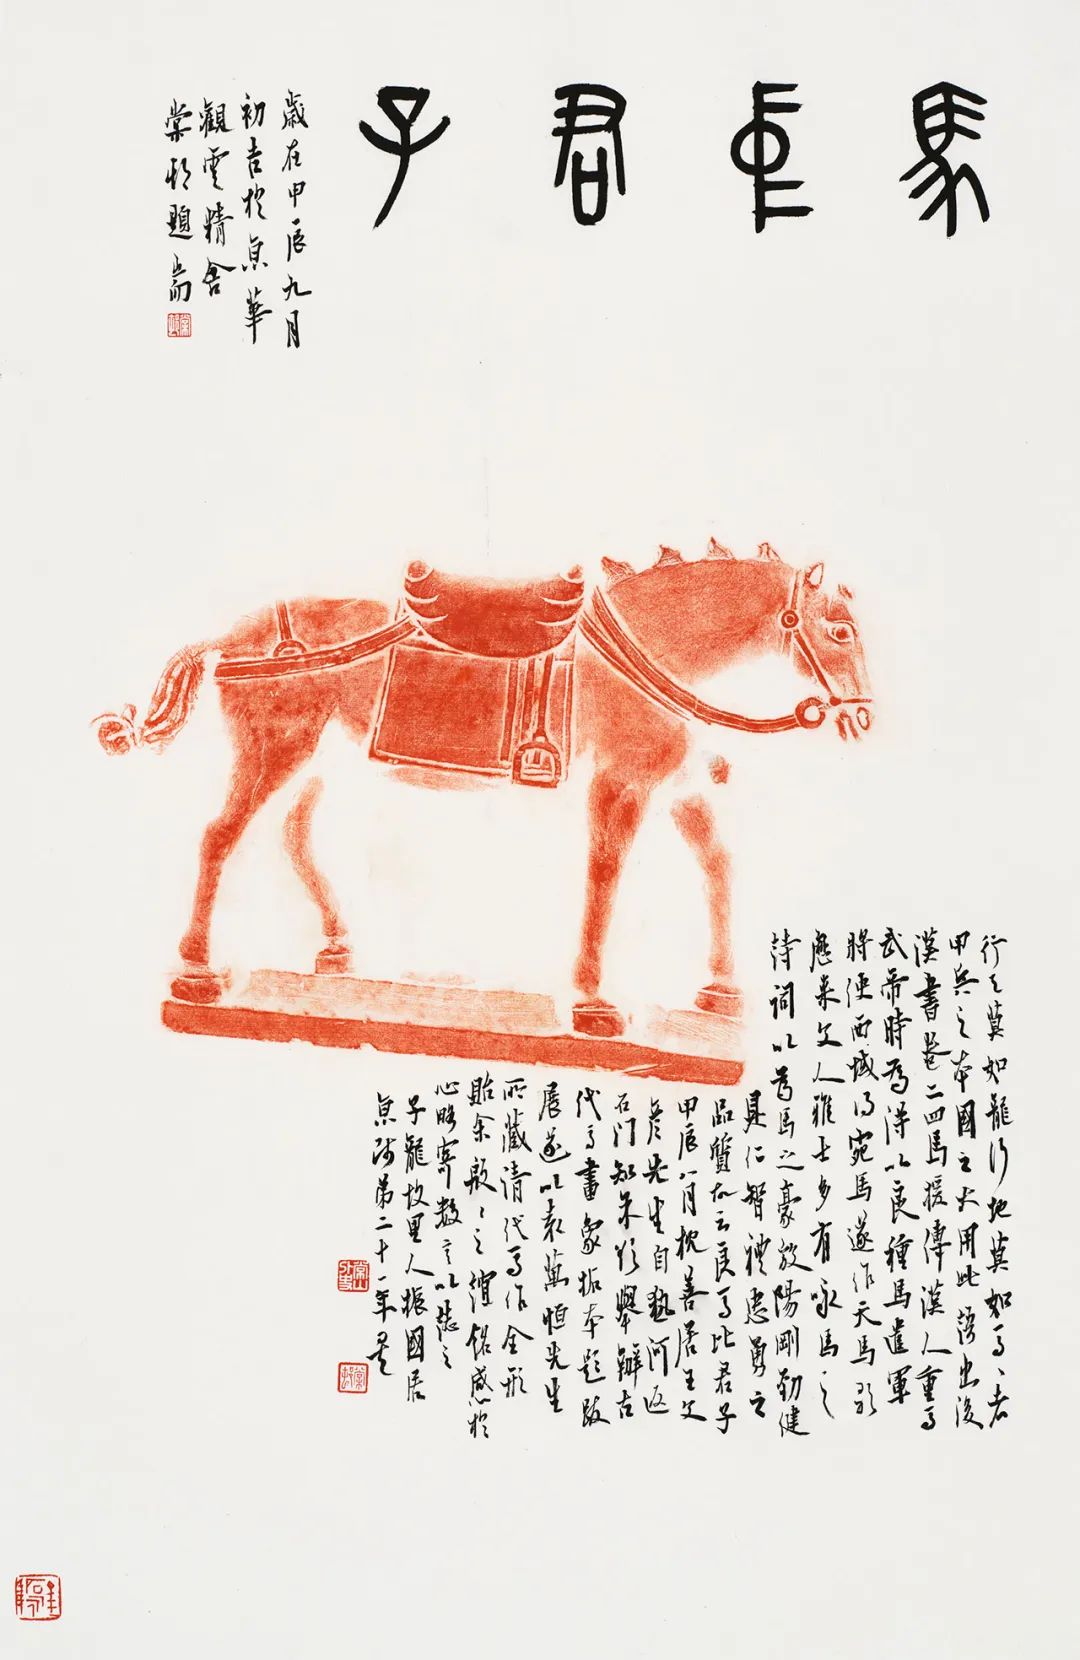 馬中君子
歲在甲辰九月
初吉於京華
觀雲精舍
棠村題耑
行天莫如龍行地莫如馬々者
甲兵之本國之大用此語出後
漢書卷二四馬援傳漢人重馬
武帝時為得以良種馬進軍
將使西域得宛馬遂作天馬歌
應來文人雅士多有咏馬之
詩詞以為馬之豪放陽剛勁健
具仁智禮忠勇之
品質故云良馬比君子
甲辰八月枕善居主文
彥先生自熱河返
石门知朱欣舉辦古
代馬畫象拓本題跋
展遂以袁萬恒先生
所藏清代馬作全形
貽余殷々之誼銘感於
心略寄數言以誌之
子龍故里人振國居
京師第二十一年矣